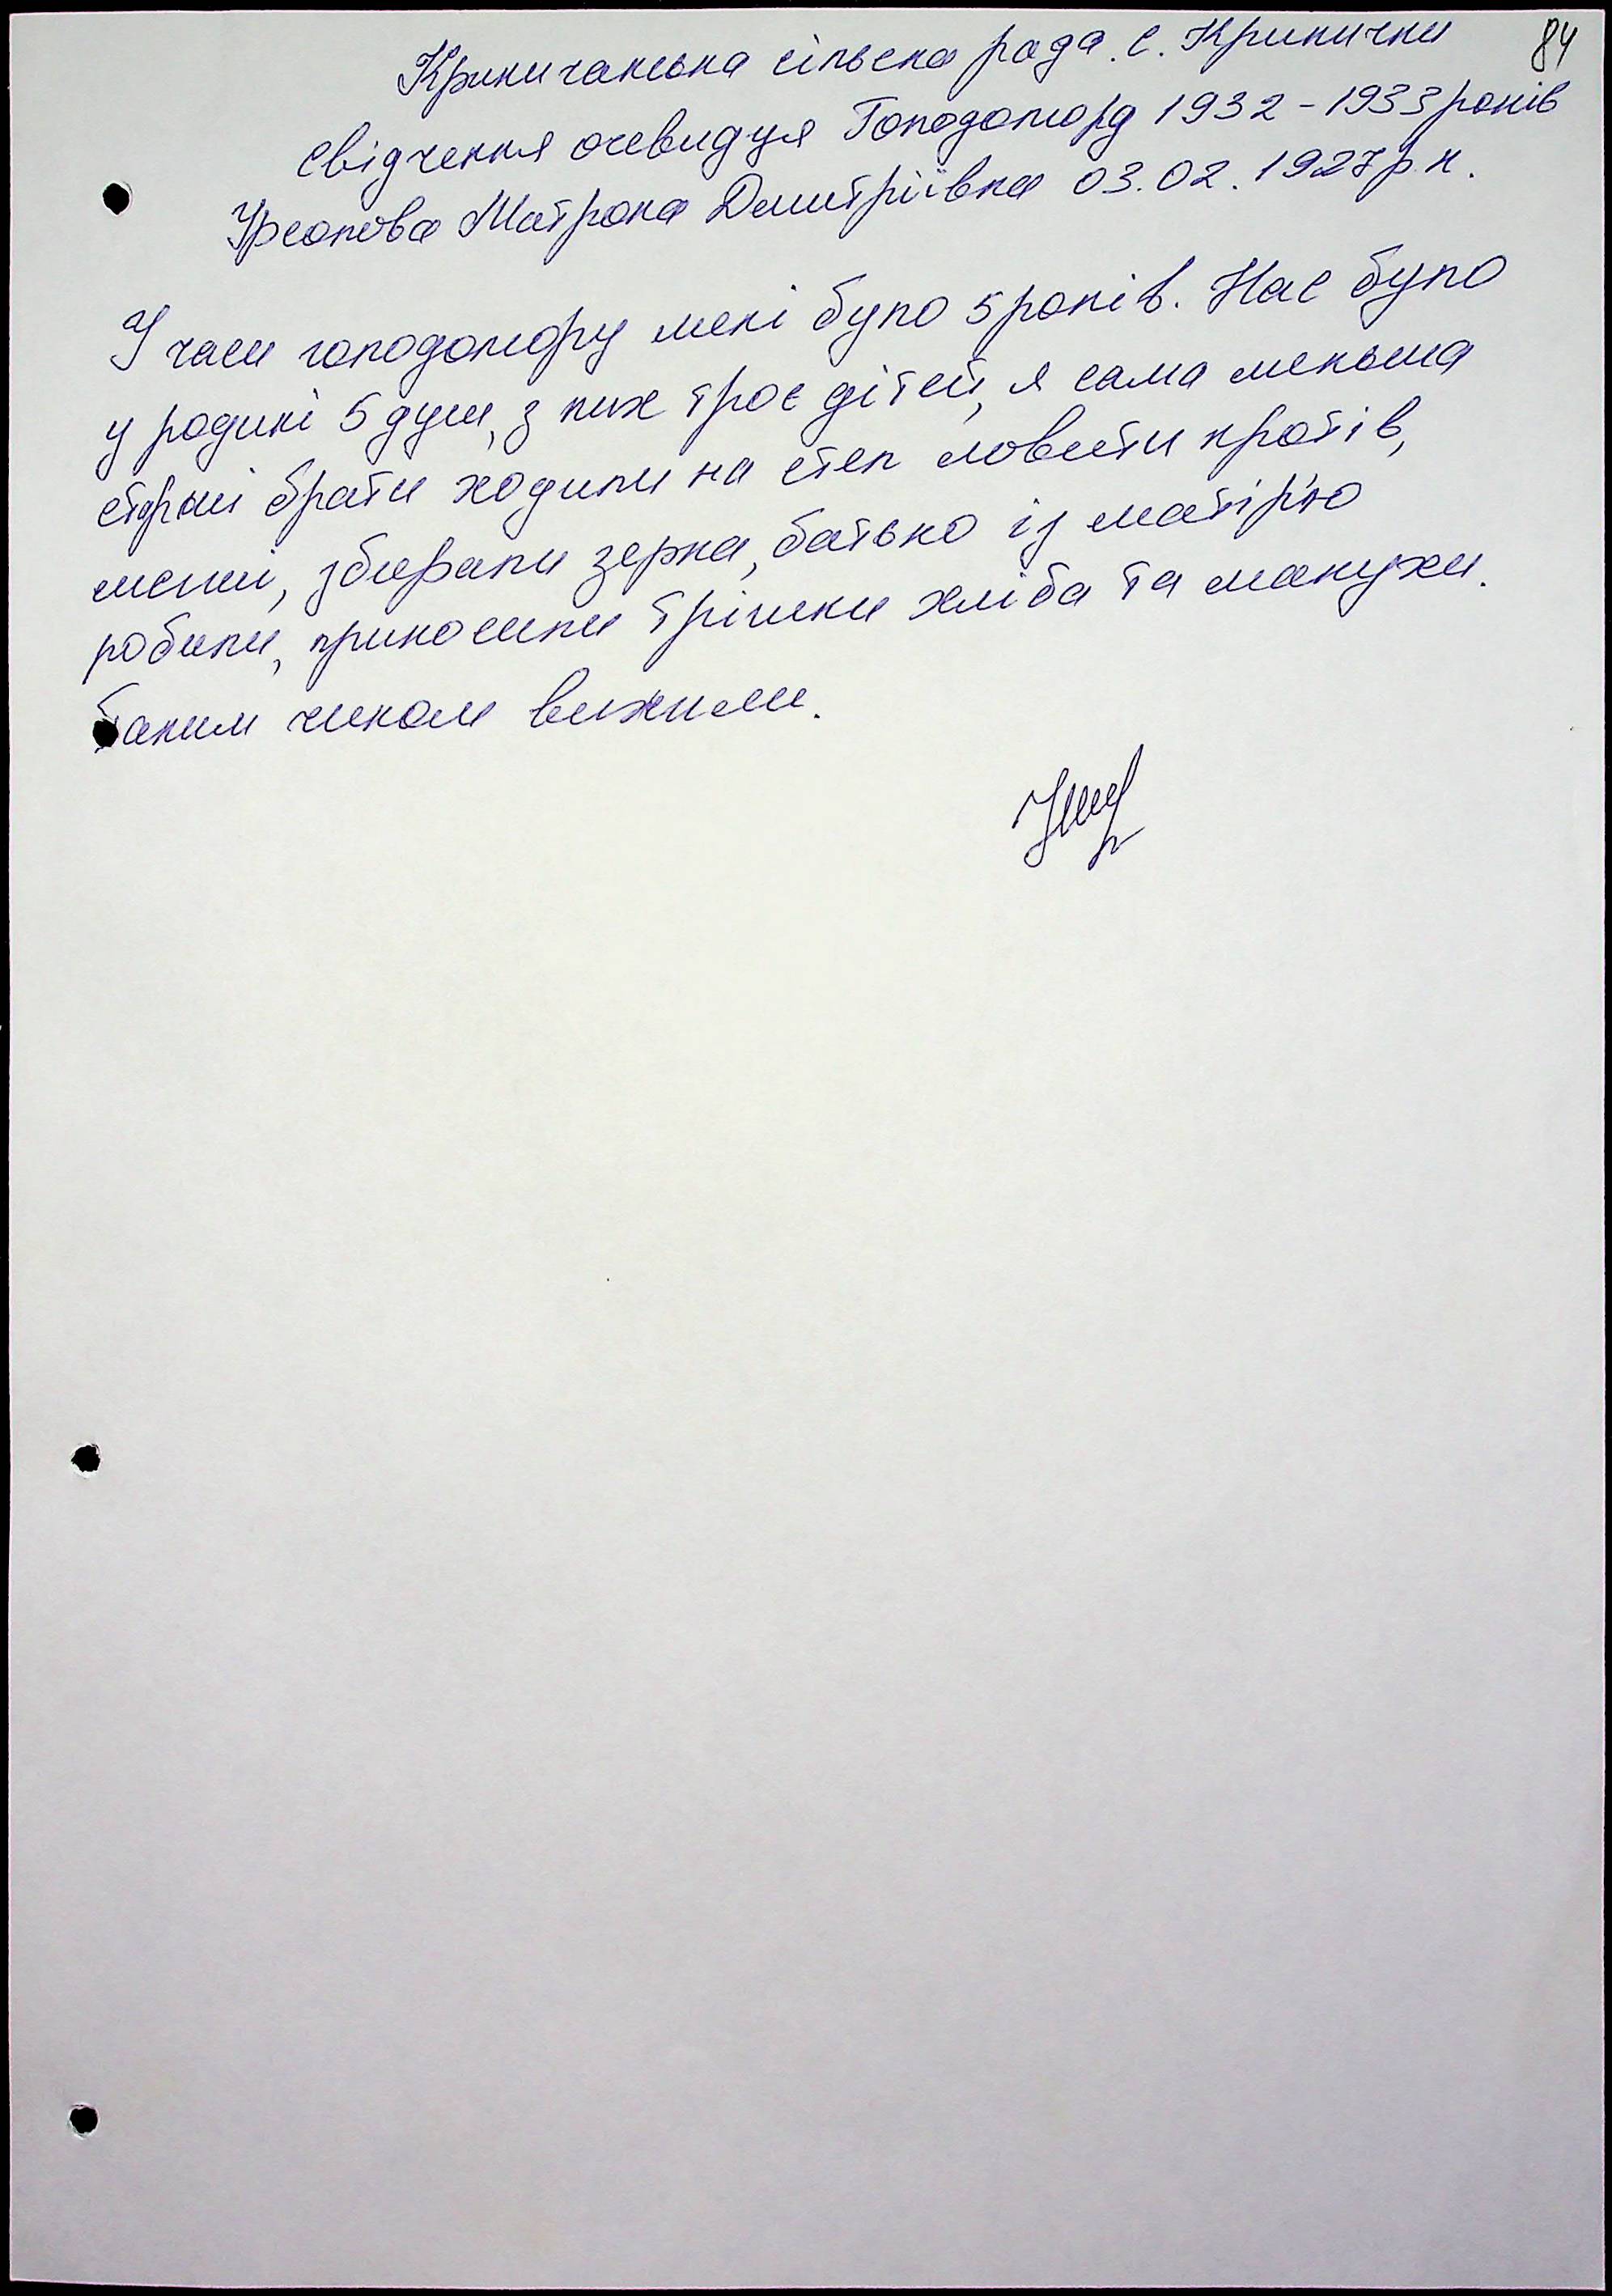 84
Криничанська сільска рада. с. Кринички
свідчення очевидця Голодомору 1932-1933 років
Матрона Дмитріївна 03.02.1927 р.н.
У часи голодомору мені було 5 років. Нас було
у родині 5 душ, з них троє дітей, я сама меньша
старші брати ходили на степ ловити кротів,
миші, збирали зерна, батько із матір'ю
робили, приносили трішки хліба та макухи.
Таким чином вижили.